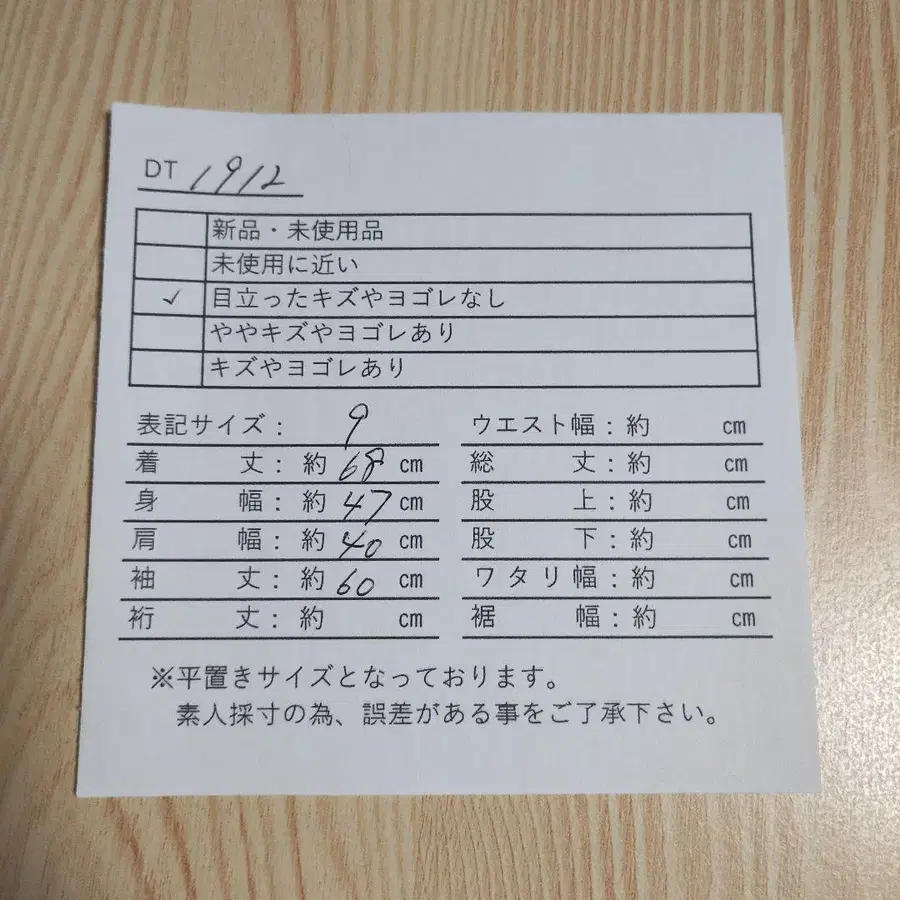 DT 1912
新品・未使用品
未使用に近い
✓ 目立ったキズやヨゴレなし
ややキズやヨゴレあり
キズやヨゴレあり
表記サイズ： 9
着丈：約 68 cm
身幅：約 47 cm
肩幅：約 40 cm
袖丈：約 60 cm
裄丈：約 cm
ウエスト幅：約 cm
総丈：約 cm
股上：約 cm
股下：約 cm
ワタリ幅：約 cm
裾幅：約 cm
※平置きサイズとなっております。
素人採寸の為、誤差がある事をご了承下さい。